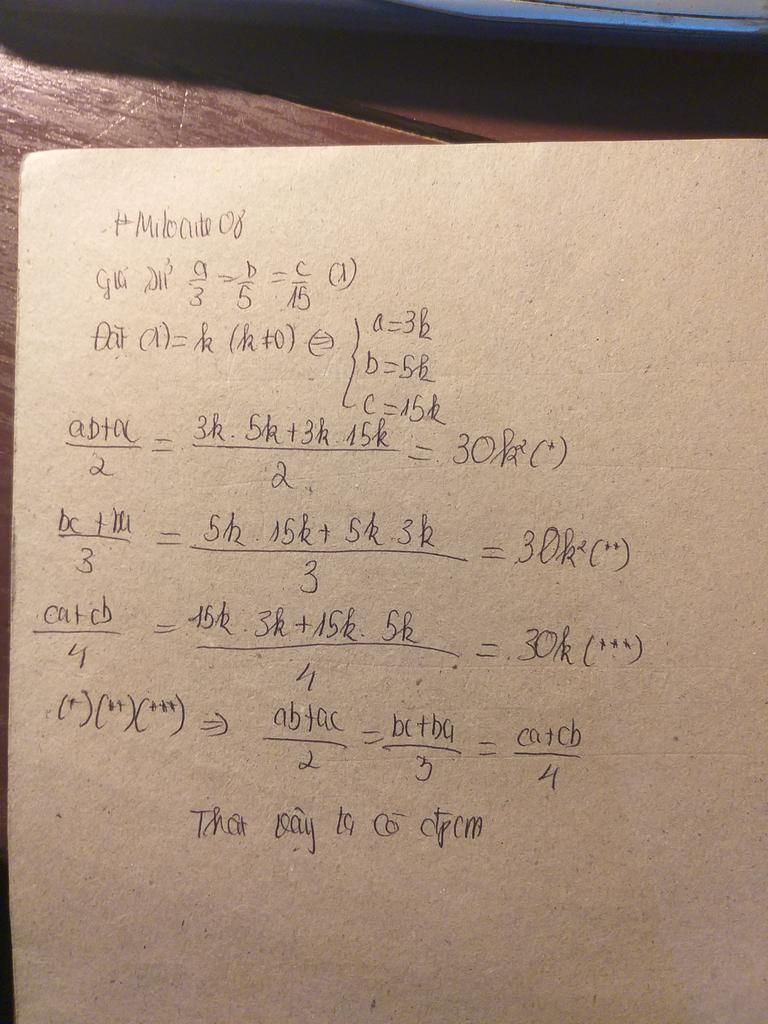 Giả sử a/3 = b/5 = c/15 (1)
Đặt (1) = k (k≠0) ⇔ { a=3k
b=5k
c=15k
(ab+ac)/2 = (3k.5k+3k.15k)/2 = 30k²(*)
(bc+ba)/3 = (5k.15k+5k.3k)/3 = 30k²(**)
(ca+cb)/4 = (15k.3k+15k.5k)/4 = 30k(***)
(*)(**)(***) ⇒ (ab+ac)/2 = (bc+ba)/3 = (ca+cb)/4
Thật vậy ta có đpcm